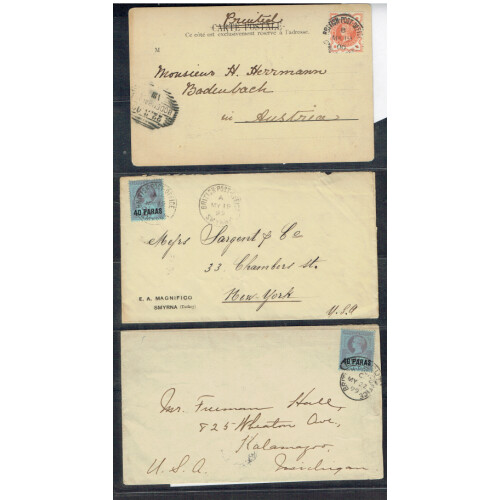 Printed
CARTE POSTALE
Ce côté est exclusivement réservé à l'adresse.
M
Monsieur H. Herrmann
Bodenbach
in Austria
40 PARAS
BRITISH POST OFFICE
A
Messrs Sargent & Co
33 Chambers st.
New-York
U.S.A
E. A. MAGNIFICO
SMYRNA (Turkey)
40 PARAS
Mr. Freeman Hall,
825 Wheaton Ave,
Kalamazoo,
U.S.A. Michigan